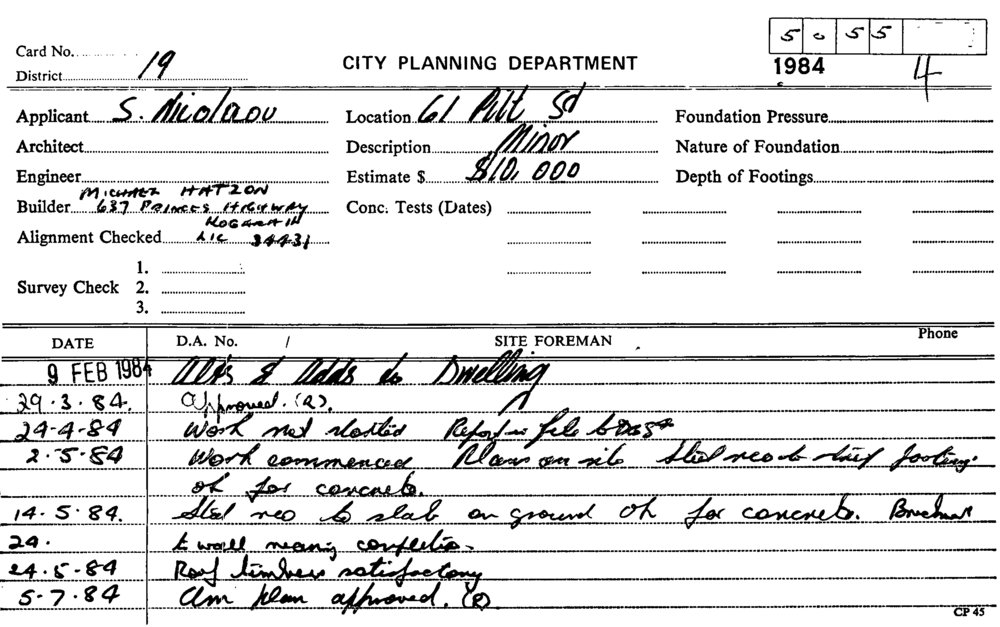 5 0 5 5
Card No.
District 19
CITY PLANNING DEPARTMENT
1984 4
Applicant S. Nicolaou Location 61 Pitt Sd Foundation Pressure
Architect Description Minor Nature of Foundation
Engineer Estimate $ $10,000 Depth of Footings
MICHAEL HATZON
Builder 637 PRINCES HIGHWAY Conc. Tests (Dates)
KOGARAH
Alignment Checked LIC 34431
1.
Survey Check 2.
3.
DATE D.A. No. / SITE FOREMAN Phone
9 FEB 1984 Alts & Adds to Dwelling
29.3.84. Approved. (R).
24-4-84 Work not started Report in file to
2.5.84 Work commenced Plans on site Steel reo to strip footing
ok for concrete.
14.5.84. Steel reo to slab on ground Ok for concrete. Brickwork
24. to wall nearing completion.
24.5.84 Roof timbers satisfactory
5.7.84 Am plan approved. (R)
CP 45